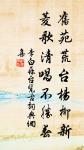 舊苑荒台楊柳新
菱歌清唱不勝春
李白蘇台覽古詞典網
集